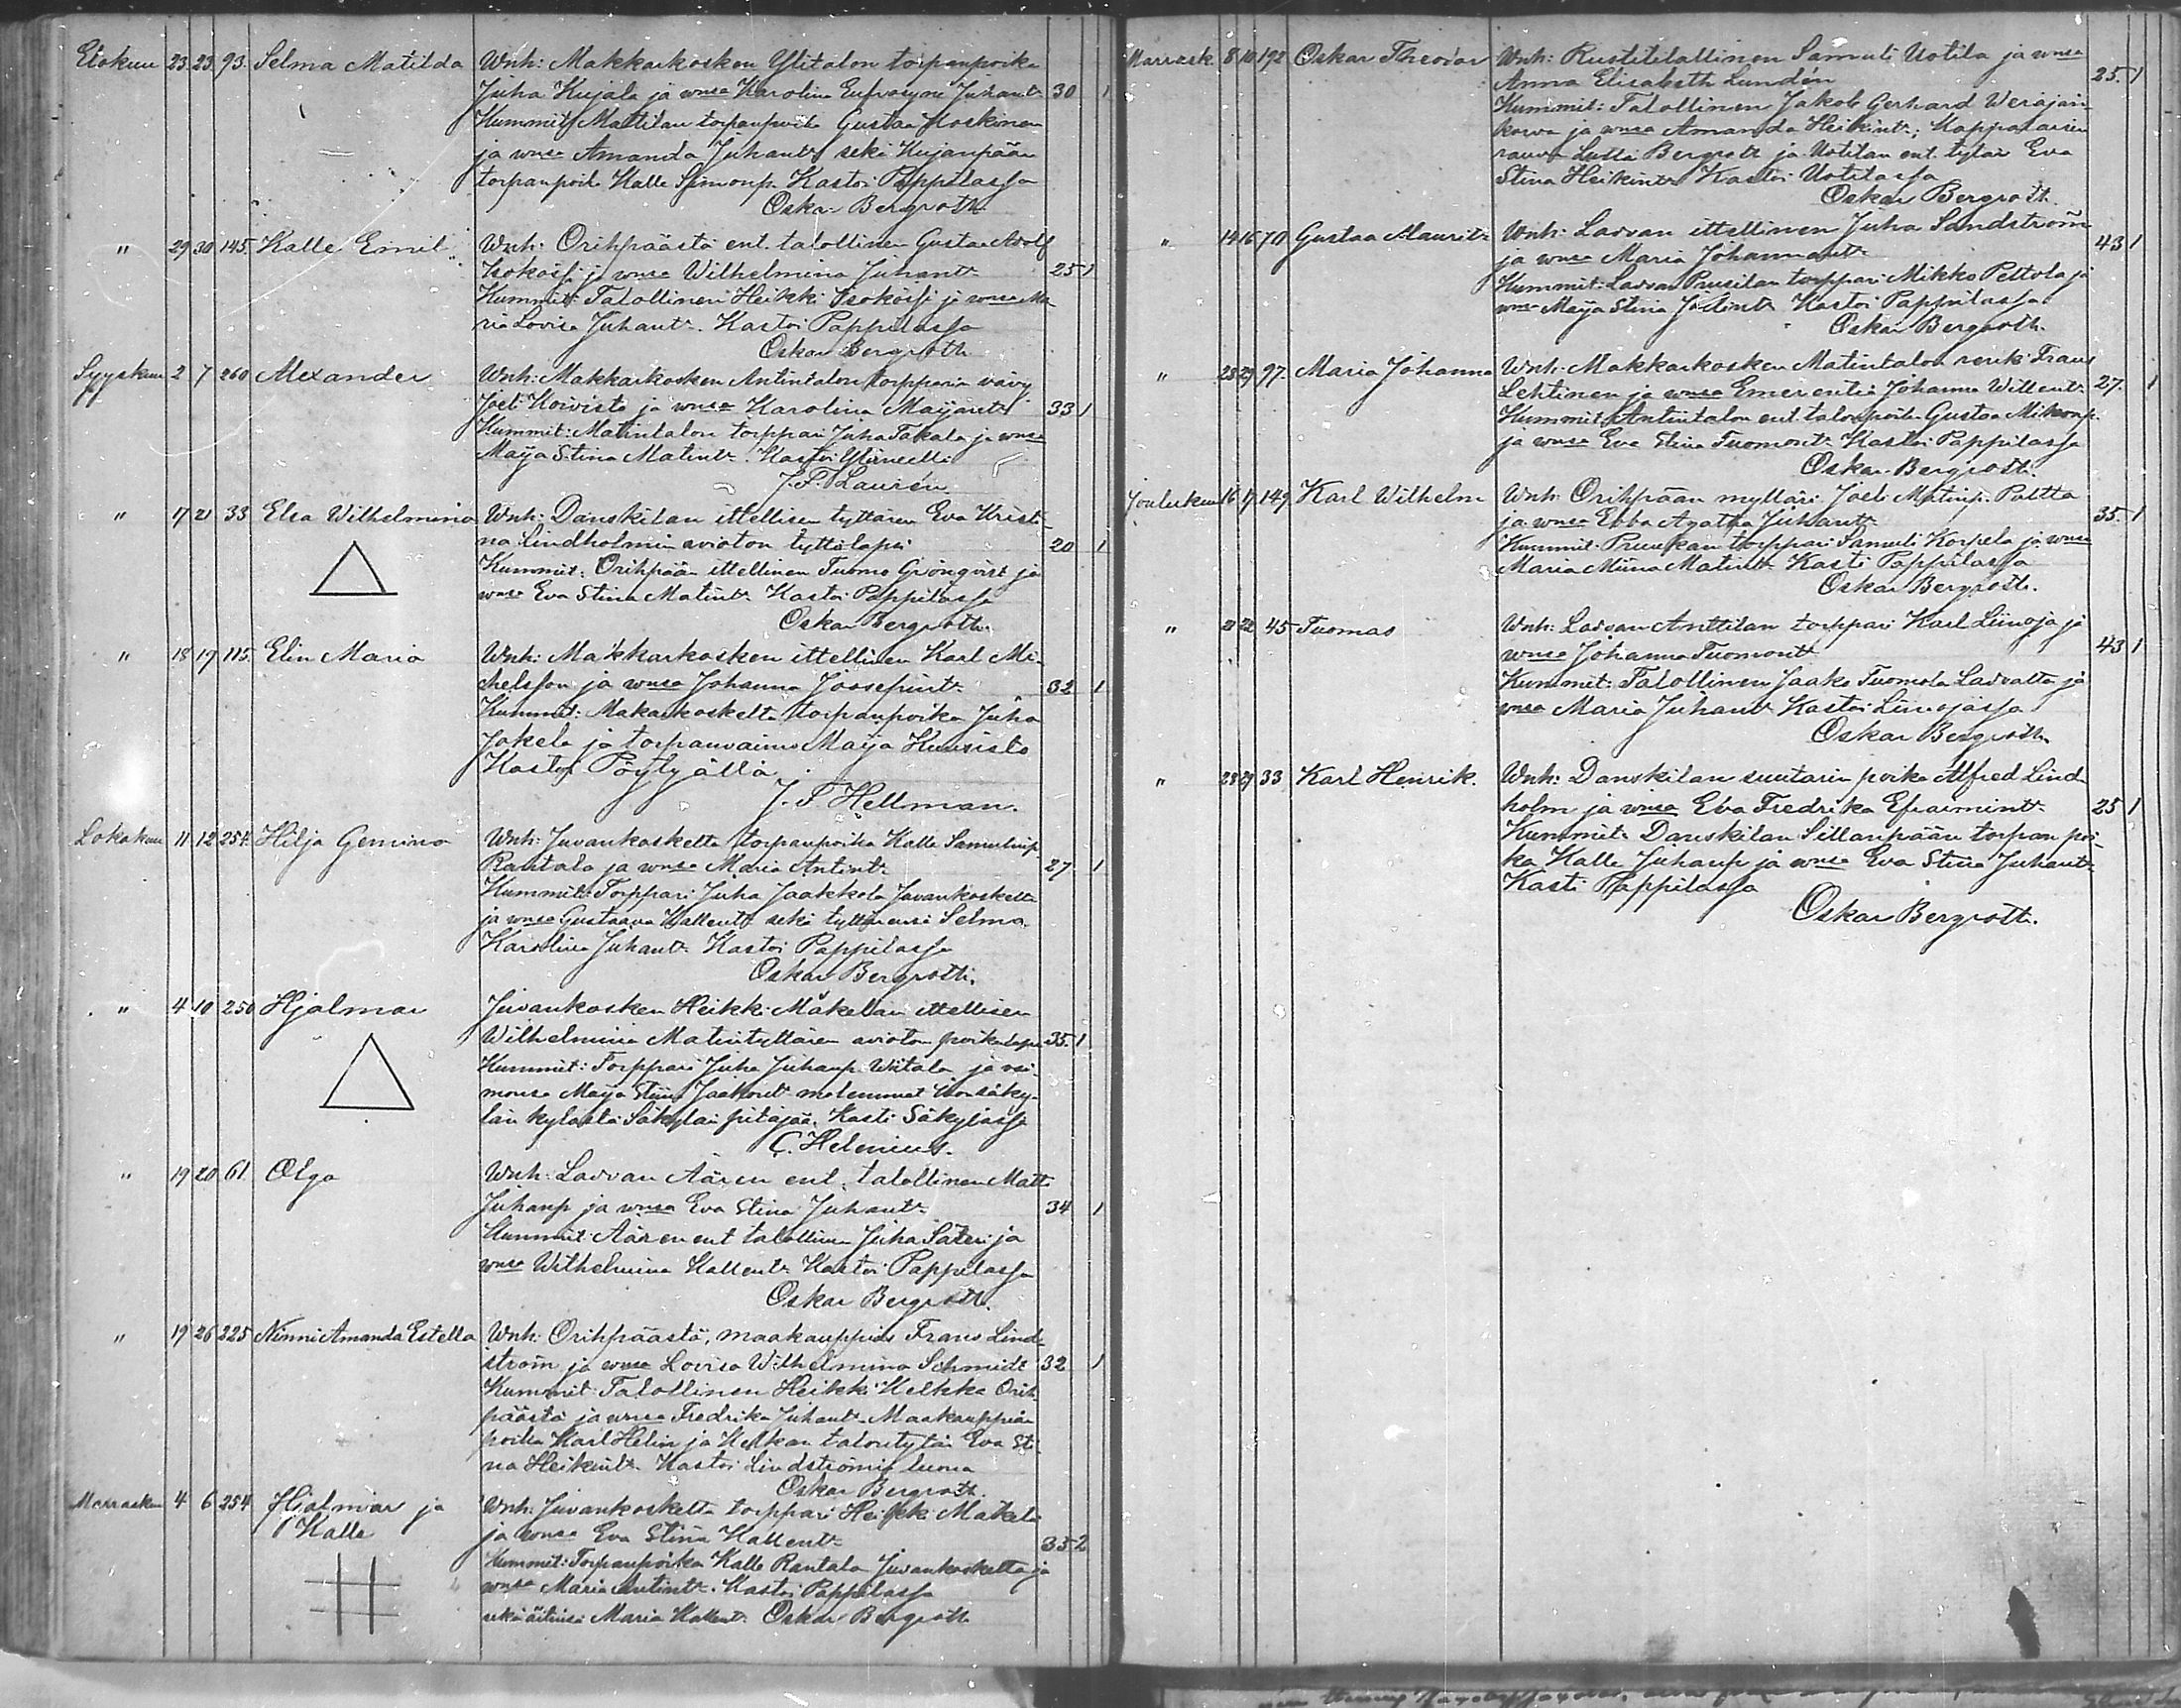 Elokuu 23 23 93 Selma Matilda Wnh: Makkarkosken Ylitalon torpanpoika
Juha Kujala ja wnsa Karolina Eufrosyne Juhant: 30 1
Kummit: Mattilan torpanpoika Gustaa Koskinen
ja wnsa Amanda Juhant: sekä Kujanpään
torpanpoik Kalle Simonp. Kastoi Pappilassa
Oskar Bergroth
" 29 30 145 Kalle Emil Wnh: Orihpäästä ent. talollinen Gustaa Adolf
Isokössi ja wnsa Wilhelmina Juhant: 25 1
Kummit: Talollinen Heikki Isokössi ja wnsa Ma
ria Lovisa Juhant: Kastoi Pappilassa
Oskar Bergroth
Syyskuu 2 7 260 Alexander Wnh: Makkarkosken Antintalon torpparin vävy
Joel Koivisto ja wnsa Karolina Maijaret: 33 1
Kummit: Matintalon torppari Juha Takala ja wnsa
Maija Stina Matint: Kastoi Yläneellä
J. F. Laurén
" 17 21 33 Elsa Wilhelmina Wnh: Danskilan ittellisen tyttären Eva Kristi-
na Lindholmin avioton tyttölapsi 20 1
Kummit: Orihpään ittellinen Tuomo Grönqvist ja
wnsa Eva Stina Matint: Kastoi Pappilassa
Oskar Bergroth
" 18 19 115 Elin Maria Wnh: Makkarkosken ittellinen Karl Mi-
chelsson ja wnsa Johanna Joosefint: 32 1
Kummit: Makarkoskelta torpanpoika Juha
Jokela ja torpanvaimo Maija Kuusisto
Kastoi Pöytyällä
J. F. Hellman.
Lokakuu 11 12 254 Hilja Gemina Wnh: Juvankoskelta torpanpoika Kalle Samulinp.
Rantala ja wnsa Maria Antint: 27 1
Kummit: Torppari Juha Jaakkola Juvankoskelta
ja wnsa Gustaava Kallent: sekä tyttärensä Selma
Karolina Juhant: Kastoi Pappilassa
Oskar Bergroth.
" 4 10 250 Hjalmar Juvankosken Heikki Mäkelän ittellisen
Wilhelmina Matintyttären avioton poikalapsi 35 1
Kummit: Torppari Juha Juhanp. Witala ja vai-
monsa Maija Stina Jaakont: molemmat Isosäky-
län kylästä Säkylän pitäjää. Kasti Säkylässä
C. Helenius.
" 19 20 61 Olga Wnh: Lavvan Aären ent. talollinen Matti
Juhanp ja wnsa Eva Stina Juhant: 34 1
Kummit: Aären ent talollinen Juha Säteri ja
wnsa Wilhelmina Kallent: Kastoi Pappilassa
Oskar Bergroth.
" 19 26 225 Nimmi Amanda Estella Wnh: Orihpäästä, maakauppias Frans Lind-
ström ja wnsa Lovisa Wilhelmina Schmidt 32 1
Kummit: Talollinen Heikki Helkka Orih
päästä ja wnsa Fredrika Juhant: Maakauppiaan
poika Karl Helin ja Helkan talontytär Eva Sti
na Heikint: Kastoi Lindströmin luona
Oskar Bergroth.
Marraskuu 4 6 254 Hjalmar ja Wnh: Juvankoskelta torppari Heikki Mäkelä
Kalle ja wnsa Eva Stina Kallent: 35 2
Kummit: Torpanpoika Kalle Rantala Juvankoskelta ja
wnsa Maria Antint: Kastoi Pappilassa
sekä äitinsä Maria Kallent: Oskar Bergroth
Marrask. 8 10 192 Oskar Theodor Wnh: Rustitilallinen Samuli Uotila ja wnsa
Anna Elisabeth Lundén 25 1
Kummit: Talollinen Jakob Gerhard Werajan-
korva ja wnsa Amanda Heikint:; Kappalaisen
rouva Lutti Bergroth ja Uotilan ent. tytär Eva
Stina Heikint: Kastoi Uotilassa
Oskar Bergroth.
" 14 16 70 Gustaa Mauritz Wnh: Lavvan ittellinen Juha Sandström
ja wnsa Maria Johannant: 43 1
Kummit: Lavvan Prusilan torppari Mikko Peltola ja
wnsa Maija Stina Kastoi Pappilassa
Oskar Bergroth.
" 28 29 97 Maria Johanna Wnh: Makkarkosken Matintalon renki Frans
Lehtinen ja wnsa Emerentia Johanna Willent: 27 1
Kummit: Antintalon ent. talonpoika Gustaa Mikonp.
ja wnsa Eva Stina Tuomont: Kastoi Pappilassa
Oskar Bergroth.
Joulukuu 16 17 149 Karl Wilhelm Wnh: Orihpään mylläri Joel Matinp. Poltta
ja wnsa Ebba Agatha Juhant: 35 1
Kummit: torppari Samuli Korpela ja wnsa
Maria Miina Matint: Kasti Pappilassa
Oskar Bergroth.
" 21 22 45 Tuomas Wnh: Lavvan Anttilan torppari Karl Liinoja ja
wnsa Johanna Tuomont: 43 1
Kummit: Talollinen Jaako Tuomola Lavvalta ja
wnsa Maria Juhant: Kastoi Liinojassa
Oskar Bergroth
" 28 29 33 Karl Henrik. Wnh: Danskilan suutarin poika Alfred Lind
holm ja wnsa Eva Fredrika Efraimint: 25 1
Kummit: Danskilan Sillanpään torpan poi-
ka Kalle Juhanp ja wnsa Eva Stina Juhant:
Kasti Pappilassa
Oskar Bergroth.